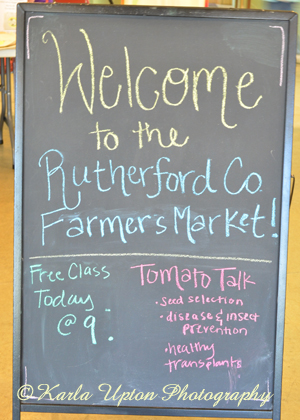 Welcome
to the
Rutherford Co
Farmers Market!
Free Class
Today
@ 9!
Tomato Talk
• seed selection
• disease & insect
prevention
• healthy
transplants
©Karla Upton Photography